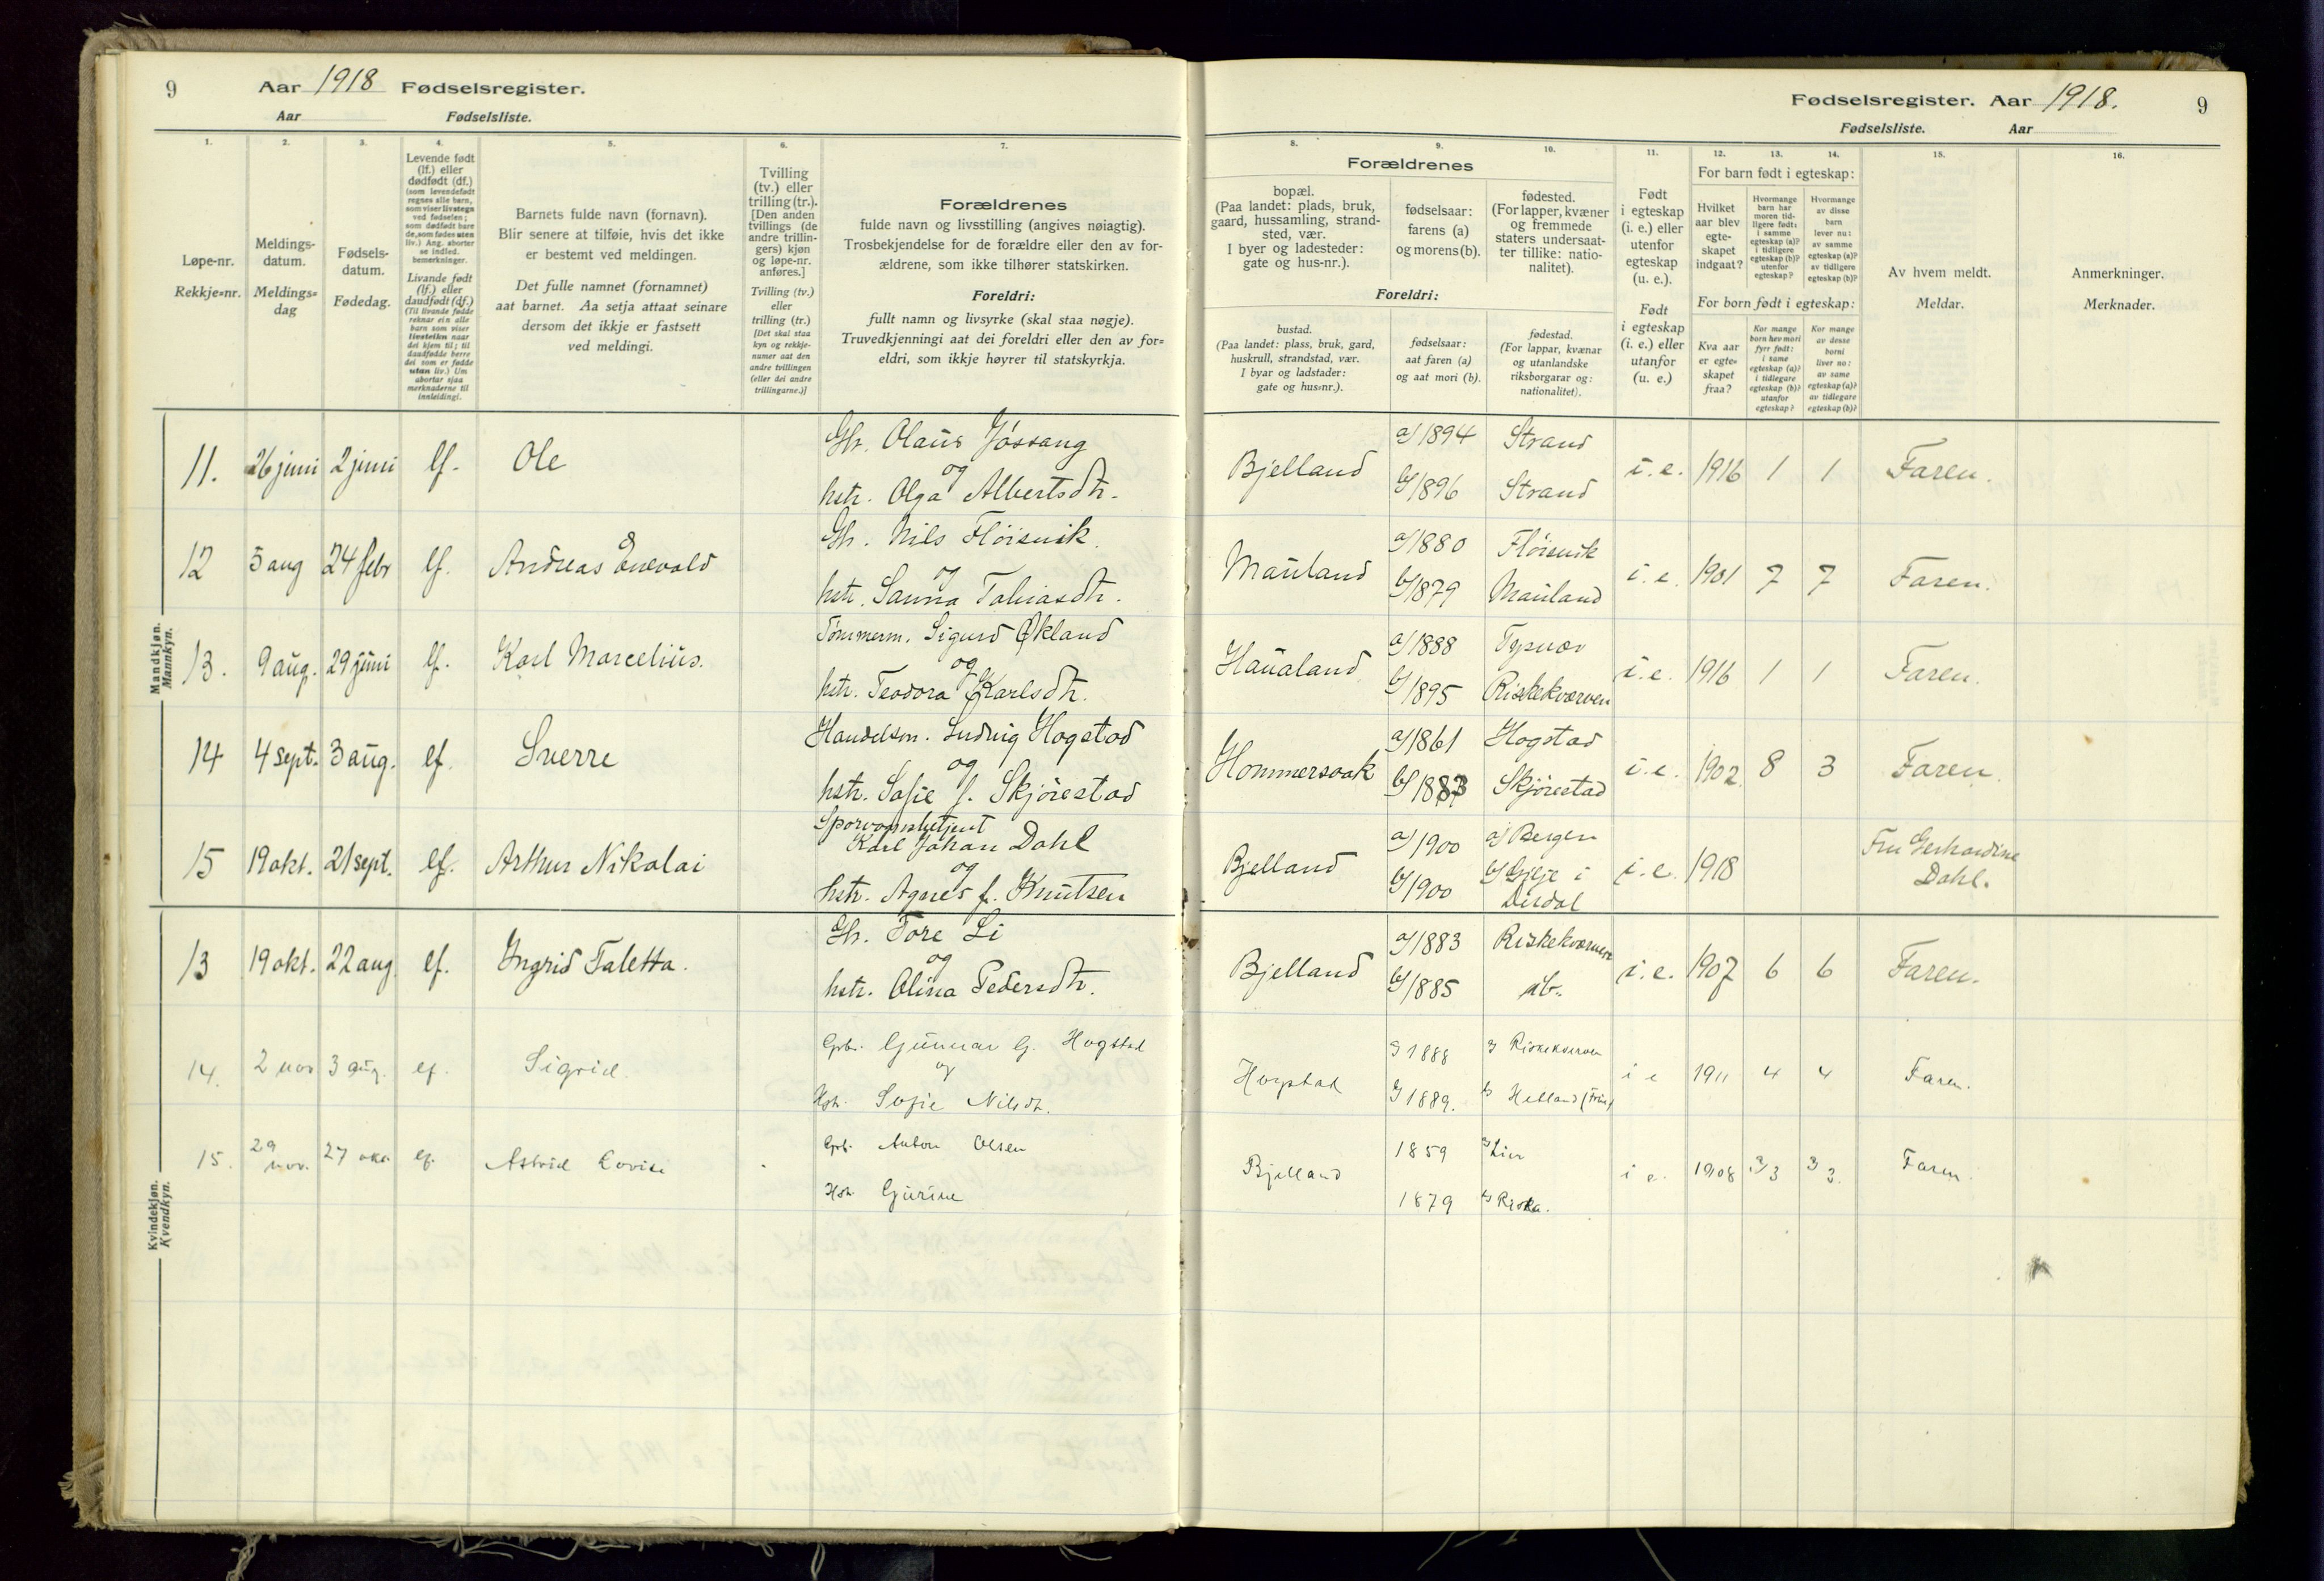 9 Aar 1918 Fødselsregister.
Aar Fødselsliste.
1. 2. 3. 4. 5. 6. 7.
Løpe-nr.
Rekkje=nr.
Meldings-
datum.
Meldings=
dag
Fødsels-
datum.
Fødedag.
Levende født
(lf.) eller
dødfødt (df.)
(som levendefødt
regnes alle barn,
som viser livstegn
ved fødselen;
som dødfødt bare
de, som fødes uten
liv.) Ang. aborter
se indled.
bemerkninger.
Livande født
(lf.) eller
daudfødt (df.)
(Til livande fødde
reknar ein alle
barn som viser
livsteikn naar
dei kjem til; til
daudfødde berre
dei som er fødde
utan liv.) Um
abortar sjaa
merknaderne til
innleidingi.
Barnets fulde navn (fornavn).
Blir senere at tilføie, hvis det ikke
er bestemt ved meldingen.
Det fulle namnet (fornamnet)
aat barnet. Aa setja attaat seinare
dersom det ikkje er fastsett
ved meldingi.
Tvilling
(tv.) eller
trilling (tr.).
[Den anden
tvillings (de
andre trillin-
gers) kjøn
og løpe-nr.
anføres.]
Tvilling (tv.)
eller
trilling (tr.)
[Det skal staa
kyn og rekkje-
numer aat den
andre tvillingen
(eller dei andre
trillingarne.)]
Forældrenes
fulde navn og livsstilling (angives nøiagtig).
Trosbekjendelse for de forældre eller den av for-
ældrene, som ikke tilhører statskirken.
Foreldri:
fullt namn og livsyrke (skal staa nøgje).
Truvedkjenningi aat dei foreldri eller den av for=
eldri, som ikkje høyrer til statskyrkja.
Mandkjøn.
Mannkyn.
11. 26 juni 2 juni lf. Ole Gbr. Olaus Jøssang
og
hstr. Olga Albertsdtr.
12 5 aug 24 febr lf. Andreas Enevald Gbr. Nils Fløisvik
og
hstr. Sanna Tobiasdtr.
13. 9 aug. 29 juni lf. Karl Marcelius. Tømmerm. Sigurd Økland
og
hstr. Teodora Karlsdtr.
14 4 sept. 3 aug. lf. Sverre Handelsm. Ludvig Hogstad
og
hstr. Sofie f. Skjørestad
15 19 okt. 21 sept. lf. Arthur Nikolai Sporvognsbetjent
Karl Johan Dahl
og
hstr. Agnes f. Knutsen
Kvindekjøn.
Kvendkyn.
13 19 okt. 22 aug. lf. Ingrid Taletta. Gbr. Tore Li
og
hstr. Olina Pedersdtr.
14. 2 nov 3 aug. lf. Sigrid. Gbr. Gunnar G. Hogstad
og
Hstr. Sofie Nilsdtr.
15. 29 nov. 27 okt. lf. Astrid Lovise Gbr. Anton Olsen
Hstr. Gurine
Fødselsregister. Aar 1918. 9
Fødselsliste. Aar
8. 9. 10. 11. 12. 13. 14. 15. 16.
Forældrenes
bopæl.
(Paa landet: plads, bruk,
gaard, hussamling, strand-
sted, vær.
I byer og ladesteder:
gate og hus-nr.).
fødselsaar:
farens (a)
og morens (b).
fødested.
(For lapper, kvæner
og fremmede
staters undersaat-
ter tillike: natio-
nalitet).
Foreldri:
bustad.
(Paa landet: plass, bruk, gard,
huskrull, strandstad, vær.
I byar og ladstader:
gate og hus=nr.).
fødselsaar:
aat faren (a)
og aat mori (b).
fødestad.
(For lappar, kvænar
og utanlandske
riksborgarar og:
nationalitet).
Født
i egteskap
(i. e.) eller
utenfor
egteskap
(u. e.).
Født
i egteskap
(i. e.) eller
utanfor
(u. e.)
For barn født i egteskap:
Hvilket
aar blev
egte-
skapet
indgaat?
Hvormange
barn har
moren tid-
ligere født:
i samme
egteskap (a)?
i tidligere
egteskap (b)?
utenfor
egteskap?
Hvormange
av disse
barn
lever nu:
av samme
egteskap (a)?
av tidligere
egteskap (b)?
For born født i egteskap:
Kva aar
er egte=
skapet
fraa?
Kor mange
born hev mori
fyrr født:
i same
egteskap (a)?
i tidlegare
egteskap (b)?
utanfor
egteskap?
Kor mange
av desse
borni
liver no:
av same
egteskap (a)?
av tidlegare
egteskap (b)?
Av hvem meldt.
Meldar.
Anmerkninger.
Merknader.
Bjelland a/1894 Strand i. e. 1916 1 1 Faren.
b/1896 Strand
Mauland a/1880 Fløisvik i. e. 1901 7 7 Faren.
b/1879 Mauland
Haualand a/1888 Tysvær i. e. 1916 1 1 Faren.
b/1895 Riskekværven
Hommersaak a/1861 Hogstad i. e. 1902 8 3 Faren.
b/1883 Skjørestad
Bjelland a/1900 a/ Bergen i. e. 1918 Fru Gerhardine
Dahl.
b/1900 b/ Gilje i
Dirdal
Bjelland a/1883 Riskekværven i. e. 1907 6 6 Faren.
b/1885 ib.
Hogstad a/ 1888 a/ Riskekværven i e 1911 4 4 Faren.
b/ 1889. b/ Helland
Bjelland 1859 a/ Lier i e. 1908 a/3 a/3. Faren.
1879 b/ Riska.